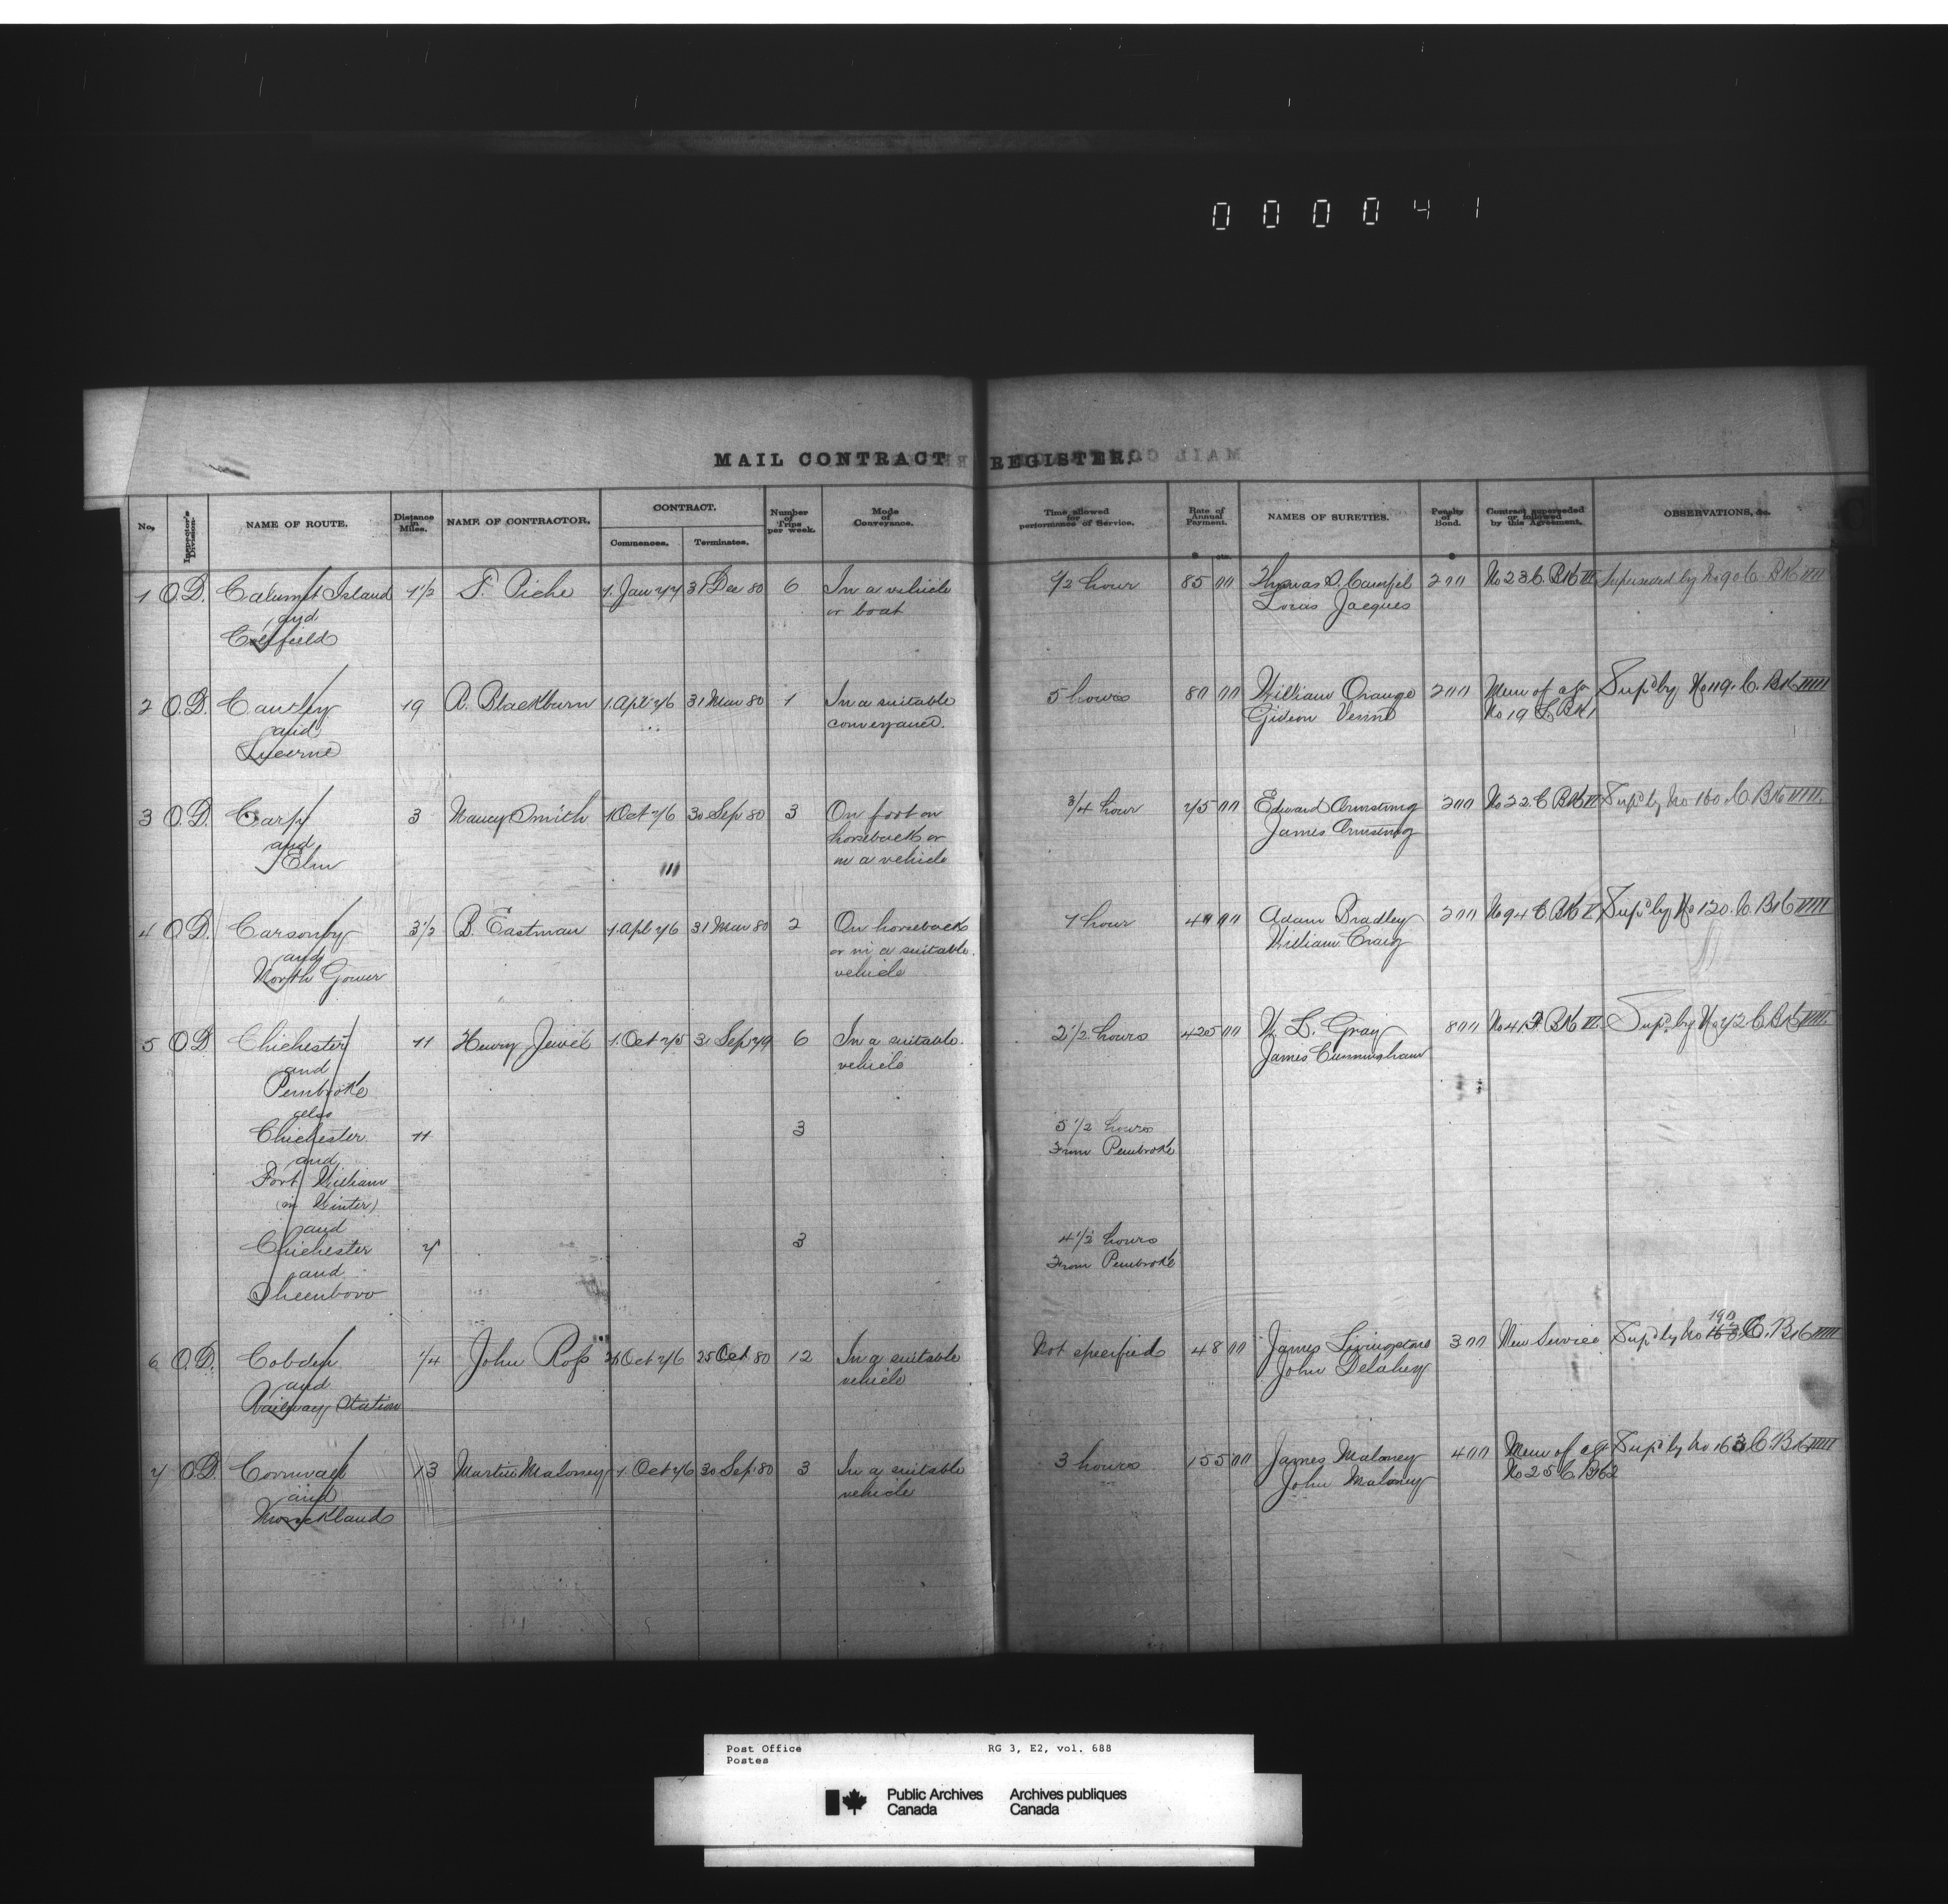 000041
MAIL CONTRACT REGISTER.
No. Inspector's Division. NAME OF ROUTE. Distance in Miles. NAME OF CONTRACTOR. CONTRACT. Commences. Terminates. Number of Trips per week. Mode of Conveyance. Time allowed for performance of Service. Rate of Annual Payment. NAMES OF SURETIES. Penalty of Bond. Contract superseded or followed by this Agreement. OBSERVATIONS, &c.
$ cts. $
1 O.D. Calumet Island 1½ P. Piche 1. Jan 77 31 Dec 80 6 In a vehicle ½ hour 85 00 Thomas S. 200 No 23 C. Bk Superseded by No 90 C Bk IIII
and or boat Louis Jacques
Coulfield
2 O.D. Cantley 19 A. Blackburn 1. Apl 76 31 Mar 80 1 In a suitable 5 hours 80 00 William Orange 200 Mem of agr Sup'd by No 119. C. Bk IIIII
and conveyance. Gideon No 19 Bk 1
Lucerne
3 O.D. Carp 3 Nancy Smith 1 Oct 76 30 Sep 80 3 On foot on ¾ hour 75 00 Edward Armstrong 200 No 22 C Bk Sup'd by No 160 C Bk IIIII
and horseback or James Armstrong
Elm in a vehicle
4 O.D. Carsonby 3½ B. Eastman 1. Apl 76 31 Mar 80 2 On horseback 1 hour 40 00 Adam Bradley 200 No 94 C Bk Sup'd by No 120. C. Bk IIIII
and or in a suitable William Craig
North Gower vehicle
5 O.D. Chichester 11 Henry Jewel 1. Oct 75 3 Sep 79 6 In a suitable 2½ hours 425 00 W. L. Gray 800 No 41 Bk Sup'd by No 72 C Bk IIIII
and vehicle James Cunningham
Pembroke
also
Chichester 11 3 5½ hours
and From Pembroke
Fort William
(in Winter)
and
Chichester 7 3 4½ hours
and From Pembroke
Sheenboro
6 O.D. Cobden ¼ John Ross 26 Oct 76 25 Oct 80 12 In a suitable Not specified 48 00 James Livingstone 300 New Service Sup'd by No 190 C. Bk IIIII
and vehicle John Delahey
Railway Station
7 O.D. Cornwall 13 Martin Maloney 1. Oct 76 30 Sep 80 3 In a suitable 3 hours 155 00 James Maloney 400 Mem of agr Sup'd by No 163 C Bk IIIII
and vehicle John Maloney No 25 C Bk 2
Monckland
Post Office RG 3, E2, vol. 688
Postes
Public Archives Archives publiques
Canada Canada